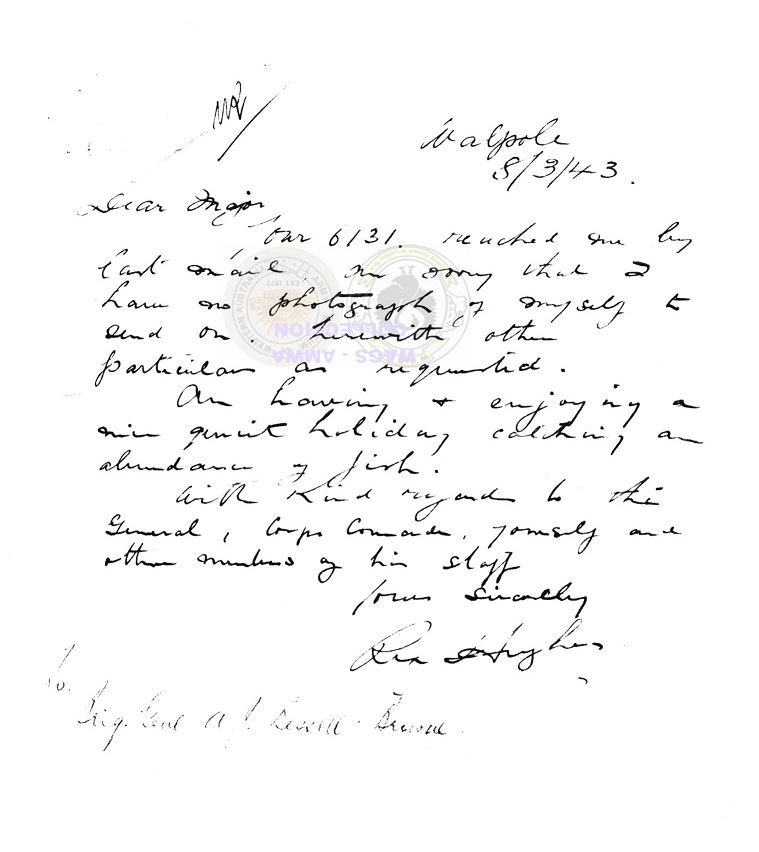 Walpole
8/3/43.
Dear Major
Your 6131. reached me by
last mail, am sorry that I
have no photograph of myself to
send on. herewith other
particulars as requested.
Am having & enjoying a
nice quiet holiday catching an
abundance of fish.
With Kind regards to the
General, Corps Comander, yourself and
other members of his staff
yours sincerely
Hughes
To.
Brig. Genl A. J. Bessell-Browne.
WAGS - AMWA
COLLECTION